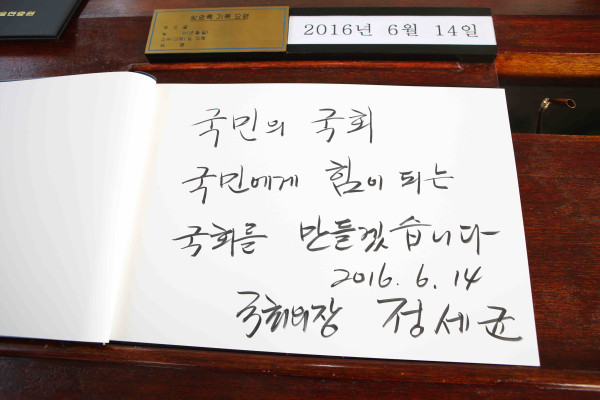 방명록 기록 요령
2016년 6월 14일
국민의 국회
국민에게 힘이 되는
국회를 만들겠습니다
2016. 6. 14
국회의장 정세균